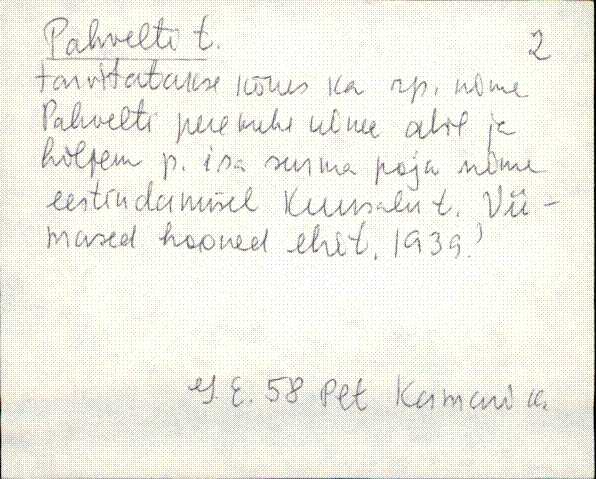 Pahvelti t. 2
tarvitatakse kõnes ka rp. nime
Pahvelti peremehe nime abil ja
hiljem p. isa surma poja nime
eestindamisel Kuusalu t. Vii-
mased hooned ehit. 1939.)
E. 58 Plt Kamari k.